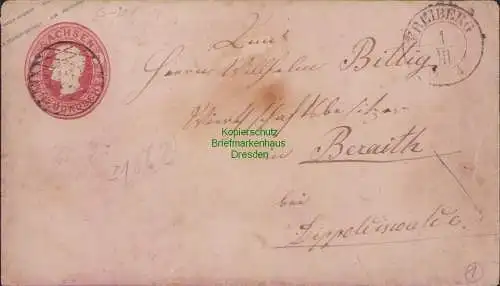 SACHSEN
FREIBERG
1
III
4
Herrn Wilhelm Billig
Wirthschaftsbesitzer
in Beraith
bei
Dippoldiswalde.
Kopierschutz
Briefmarkenhaus
Dresden